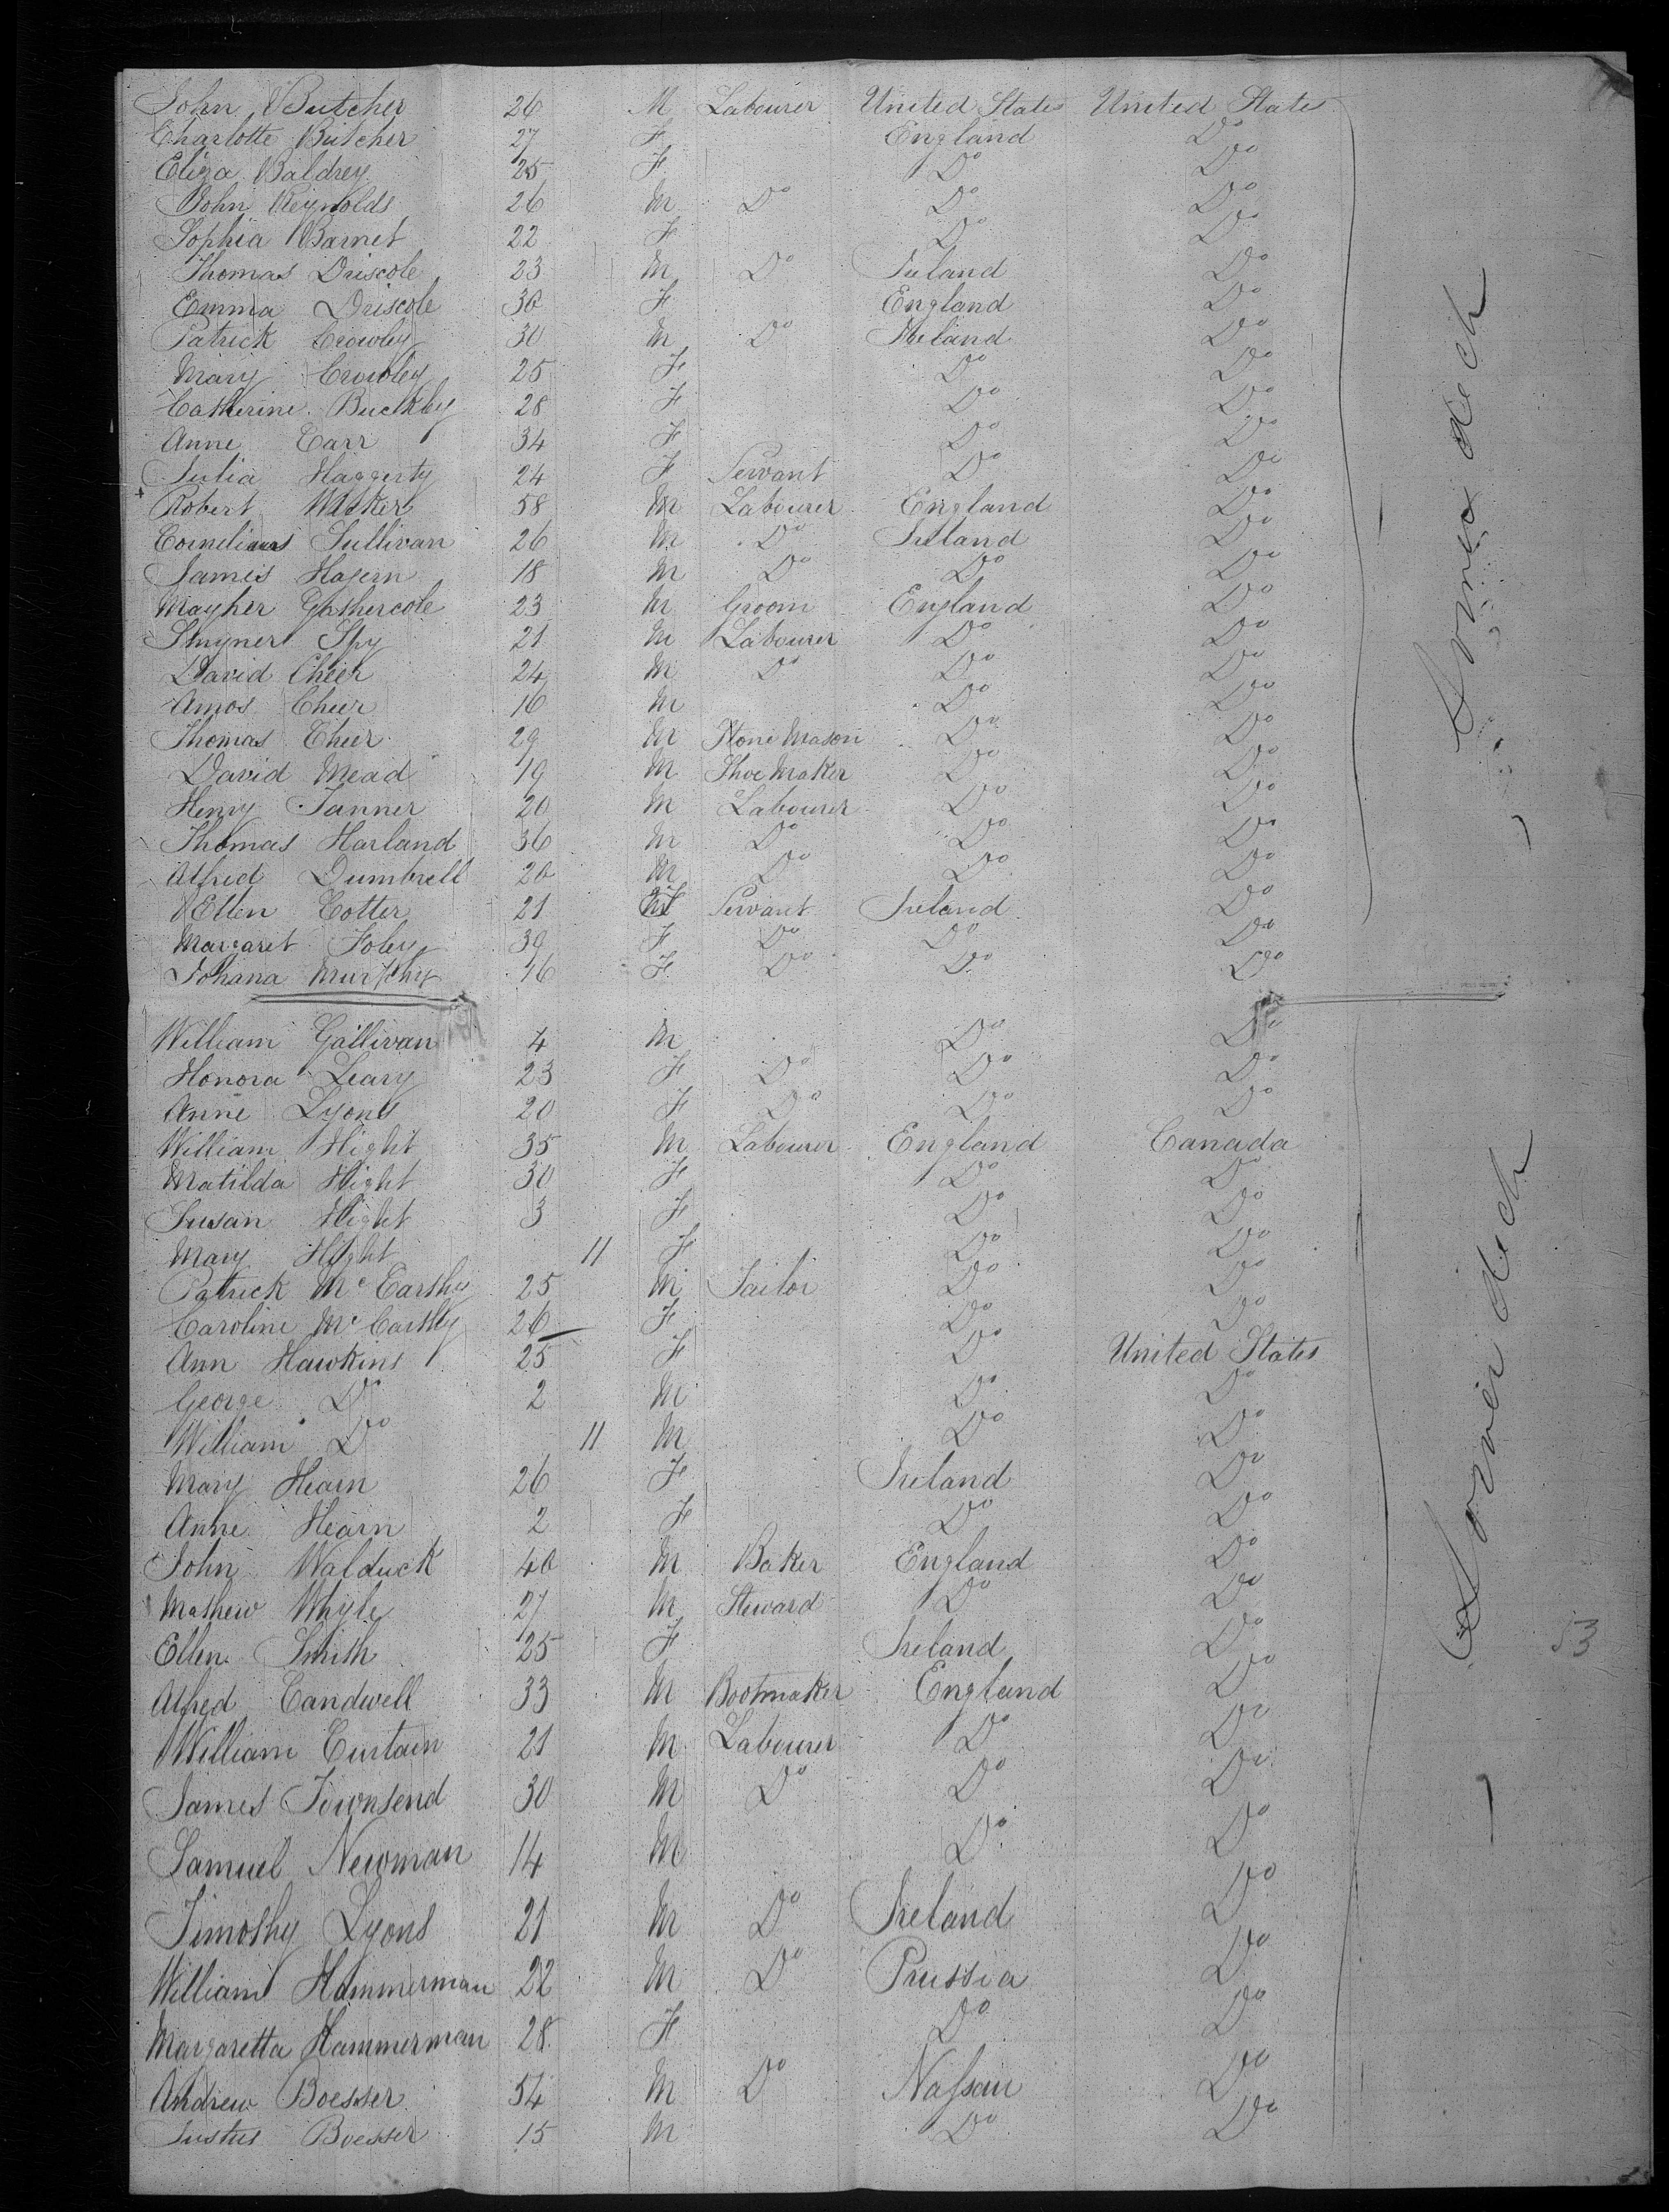 John Butcher 26 M Labourer United States United States
Charlotte Butcher 27 F England Do
Eliza Baldrey 25 F Do Do
John Reynolds 26 M Do Do Do
Sophia Barnet 22 F Do Do
Thomas Driscole 23 M Do Ireland Do
Emma Driscole 30 F England Do
Patrick Crowley 30 M Do Ireland Do
Mary Crowley 25 F Do Do
Catherine Buckley 28 F Do Do
Anne Carr 34 F Do Do
Julia Haggerty 24 F Servant Do Do
Robert Walker 58 M Labourer England Do
Cornelius Sullivan 26 M Do Ireland Do
James Hagern 18 M Do Do Do
Mayher Gathercole 23 M Groom England Do
Spy 21 M Labourer Do Do
David Cheer 24 M Do Do Do
Amos Cheer 16 M Do Do
Thomas Cheer 29 M Stone Mason Do Do
David Mead 19 M Shoe Maker Do Do
Henry Tanner 20 M Labourer Do Do
Thomas Harland 36 M Do Do Do
Alfred Dumbrell 20 M Do Do Do
Ellen Cotter 21 F Servant Ireland Do
Margaret Foley 39 F Do Do Do
Johana Murphy 16 F Do Do Do
William Gallivan 4 M Do Do
Honora Leary 23 F Do Do Do
Anne Lyons 20 F Do Do Do
William Hight 35 M Labourer England Canada
Matilda Hight 30 F Do Do
Susan Hight 3 F Do Do
Mary Hight 11 F Do Do
Patrick Mc Carthy 25 M Tailor Do Do
Caroline Mc Carthy 26 F Do Do
Ann Hawkins 25 F Do United States
George Do 2 M Do Do
William Do 11 M Do Do
Mary Hearn 26 F Ireland Do
Anne Hearn 2 F Do Do
John Walduck 40 M Baker England Do
Mathew Whyle 27 M Steward Do Do
Ellen Smith 25 F Ireland Do
Alfred Candwell 33 M Bootmaker England Do
William Curtain 21 M Labourer Do Do
James Townsend 30 M Do Do Do
Samuel Newman 14 M Do Do
Timothy Lyons 21 M Do Ireland Do
William Hammerman 22 M Do Prussia Do
Margaretta Hammerman 28 F Do Do
Andrew Boesser 54 M Do Nassau Do
Justus Boesser 15 M Do Do
Lower deck
Lower deck
53